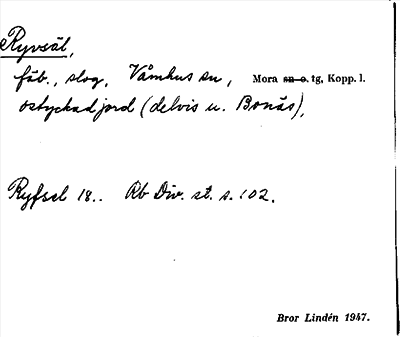 Ryvsäl,
fäb., slog, Våmhus sn, Mora sn o. tg, Kopp. l.
ostyckad jord (delvis u. Bonäs),
Ryfsel 18.. Rb Div. st. s. 102.
Bror Lindén 1947.